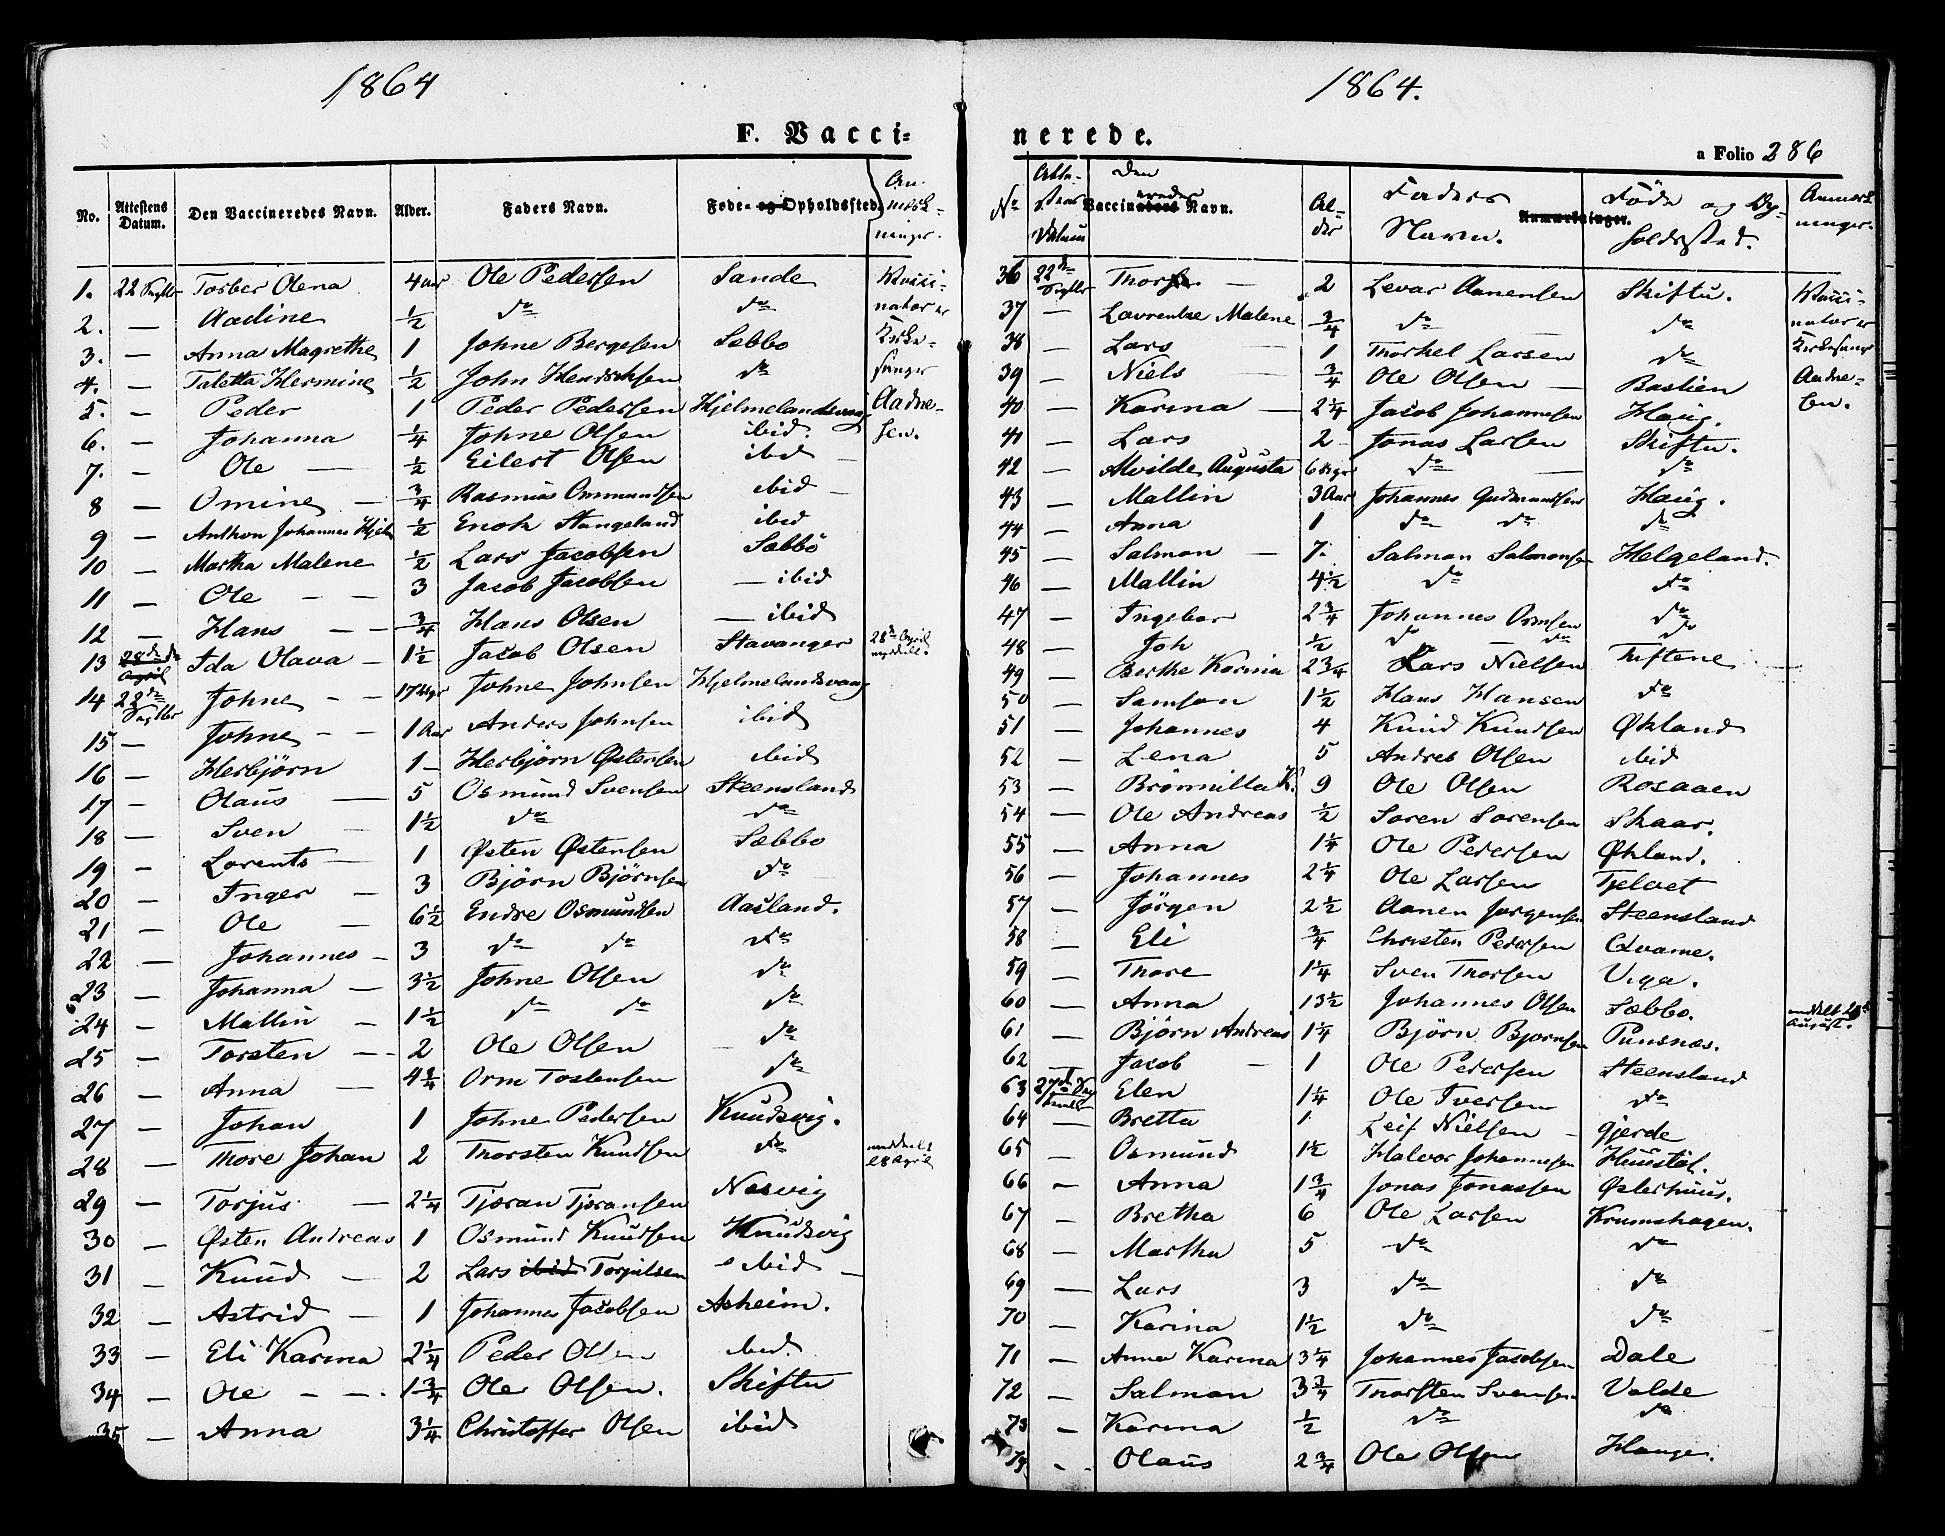 1864
F. Vacci-
No. Attestens Datum. Den Vaccineredes Navn. Alder. Faders Navn. Føde- og Opholdssted. An-mærk-ninger.
1. 22 Septbr Torber Olena 4 aar Ole Pedersen Sande Vacci-
2. — Aadine ½ do do nator er
3. — Anna Magrethe 1 Johne Bergesen Sæbbø Kirke-
4. — Taletta Hermine ½ John Hendriksen do sanger
5. — Peder 1 Peder Pedersen Hjelmelandsvaag Aadne-
6. — Johanna ¼ Johne Olsen ibid. sen.
7. — Ole — ½ Eilert Olsen ibid —
8 — Omine — ¾ Rasmus Ommundsen ibid —
9 — Anthon Johannes ½ Enok Stangeland ibid
10 — Martha Malene ½ Lars Jacobsen Sæbbö
11 — Ole — — 3 Jacob Jacobsen — ibid
12 — Hans — — ¾ Hans Olsen — ibid
13 28de April Ida Olava — 1½ Jacob Olsen Stavanger 28de April
14 22de Septbr Johne — — 17 Uger Johne Johnsen Hjelmelandsvaag
15 — Johne — — 1 Aar Anders Johnsen ibid
16 — Herbjörn 1 — Herbjörn Østensen ibid
17 — Olaus — 5 Osmund Svensen Steensland
18 — Sven — 1½ do do
19 — Lorents — 1 Østen Østensen Sæbbo
20 — Inger — 3 Björn Björnsen do
21 — Ole — 6½ Endre Osmundsen Aasland.
22 — Johannes — 3 do do do
23 — Johanna — 3½ Johne Olsen do
24 — Mallin — 1½ do do do
25 — Torsten — - 2 Ole Olsen do
26 — Anna — 4¾ Orm Tostensen do
27 — Johan 1 Johne Pedersen Knudsvig.
28 — Thore Johan 2 Thorsten Knudsen do meddelt 28 April
29 — Torjus — 2¼ Tjøran Tjøransen Nesvig
30 — Østen Andreas 1 Osmund Knudsen Knudsvig
31 — Knud — 2 Lars ibid Torjulsen ibid —
32 — Astrid — 1 Johannes Jacobsen Asheim.
33 — Eli Karina 2¼ Peder Olsen ibid.
34 — Ole — — 1¾ Ole Olsen. Skiftu
35 — Anna 3¼ Christoffer Olsen ibid
1864.
nerede.
a Folio 286
No Atte-stens Datum Den Vaccineredes Navn. Al-der Faders Navn. Anmærkninger. Föde og Op-holdssted. Anmærk-ninger.
36 22de Septbr — 2 Levar Aanensen Skiftu. Vacci-
37 — Lavrentze Malene ¾ do — do nator er
38 — Lars 1 Thorkel Larsen do Kirkesanger
39 — Niels ¾ Ole Olsen — Bastien Aadne-
40 — Karina — 2¼ Jacob Johannesen Haug. sen.
41 — Lars 2 Jonas Larsen Skiftu.
42 — Alvilde Augusta 6 Uger do — do
43 — Mallin 3 Aar Johannes Gudmundsen Haug.
44 — Anna 1 do do do
45 — Salmon — 7. Salmon Salmonsen Helgeland.
46 — Mallin 4½ do do
47 — Ingebor 2¾ Johannes Ormsen do
48 — Joh ½ do do do
49 — Berthe Karina 2¾ Lars Nielsen Tuftene
50 — Samson 1½ Hans Hansen do
51 — Johannes 4 Knud Knudsen Økland
52 — Lena 5 Andreas Olsen ibid
53 — Brönnilla K. 9 Ole Olsen Rosaaen
54 — Ole Andreas ½ Soren Sorensen Skaar.
55 — Anna 1¼ Ole Pedersen Økland.
56 — Johannes 2¼ Ole Larsen Tjelvet
57 — Jörgen 2½ Aanen Jørgensen Steensland
58 — Eli ¾ Christen Pedersen Qvame.
59 — Thore 1¼ Sven Thorsen Viga.
60 — Anna 13½ Johannes Olsen Sæbbo. meddelt August.
61 — Björn Andreas 1¼ Björn Bjornsen Punsnæs.
62 — Jacob — 1 Ole Pedersen Steensland
63 27de Septembr Elen 1¼ Ole Iversen do
64 — Bretta 1 Leif Nielsen — Gjerde
65 — Osmund 1½ Halvor Johannesen Huustöl.
66 — Anna 1¾ Jonas Jonassen Østerhuus.
67 — Bretha 6 Ole Larsen Krumshagen.
68 — Martha 5 do do
69 — Lars 3 do do
70 — Karina 1½ do do
71 — Anna Karina 3¼ Johannes Jacobsen Dale
72 — Salmon 3¾ Thorsten Svensen Valde
73 — Karina ½ do do
74 - - Olaus 2¾ Ole Olsen Hauge.